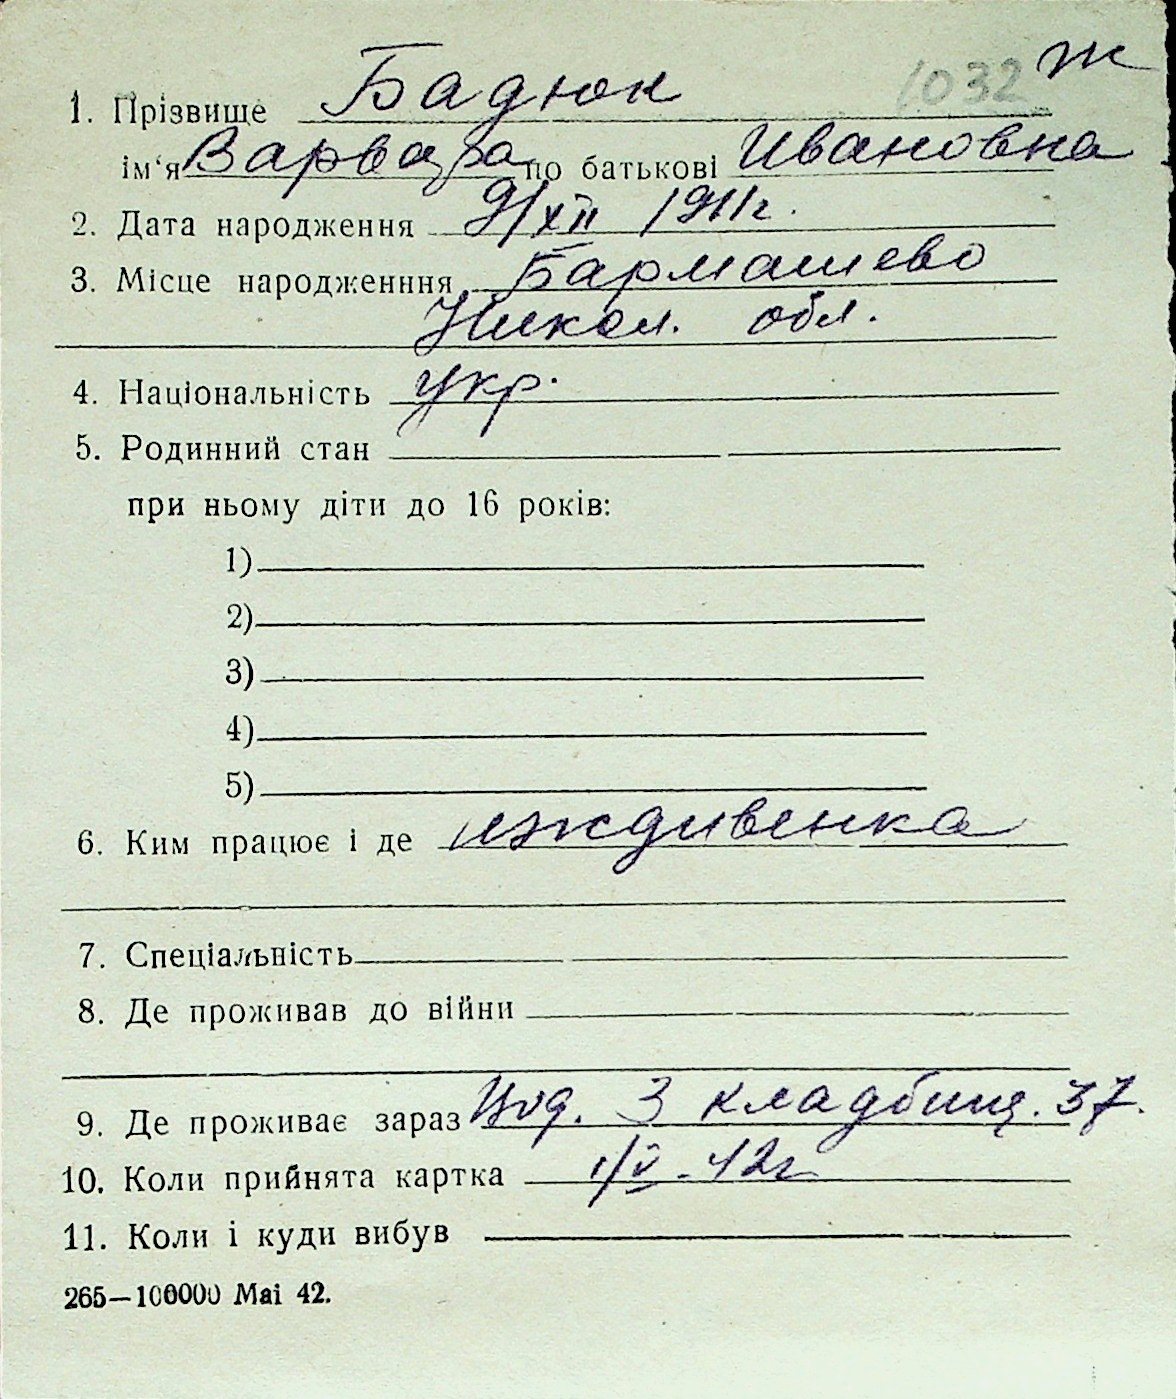 1032 Ж
1. Прізвище Бадюк
ім'я Варвара по батькові Ивановна
2. Дата народження 9/XII 1911г.
3. Місце народженння Бармашево
Никол. обл.
4. Національність укр.
5. Родинний стан
при ньому діти до 16 років:
1)
2)
3)
4)
5)
6. Ким працює і де иждивенка
7. Спеціальність
8. Де проживав до війни
9. Де проживає зараз 3 кладбищ. 37.
10. Коли прийнята картка 1/V-42г
11. Коли і куди вибув
265—100000 Mai 42.